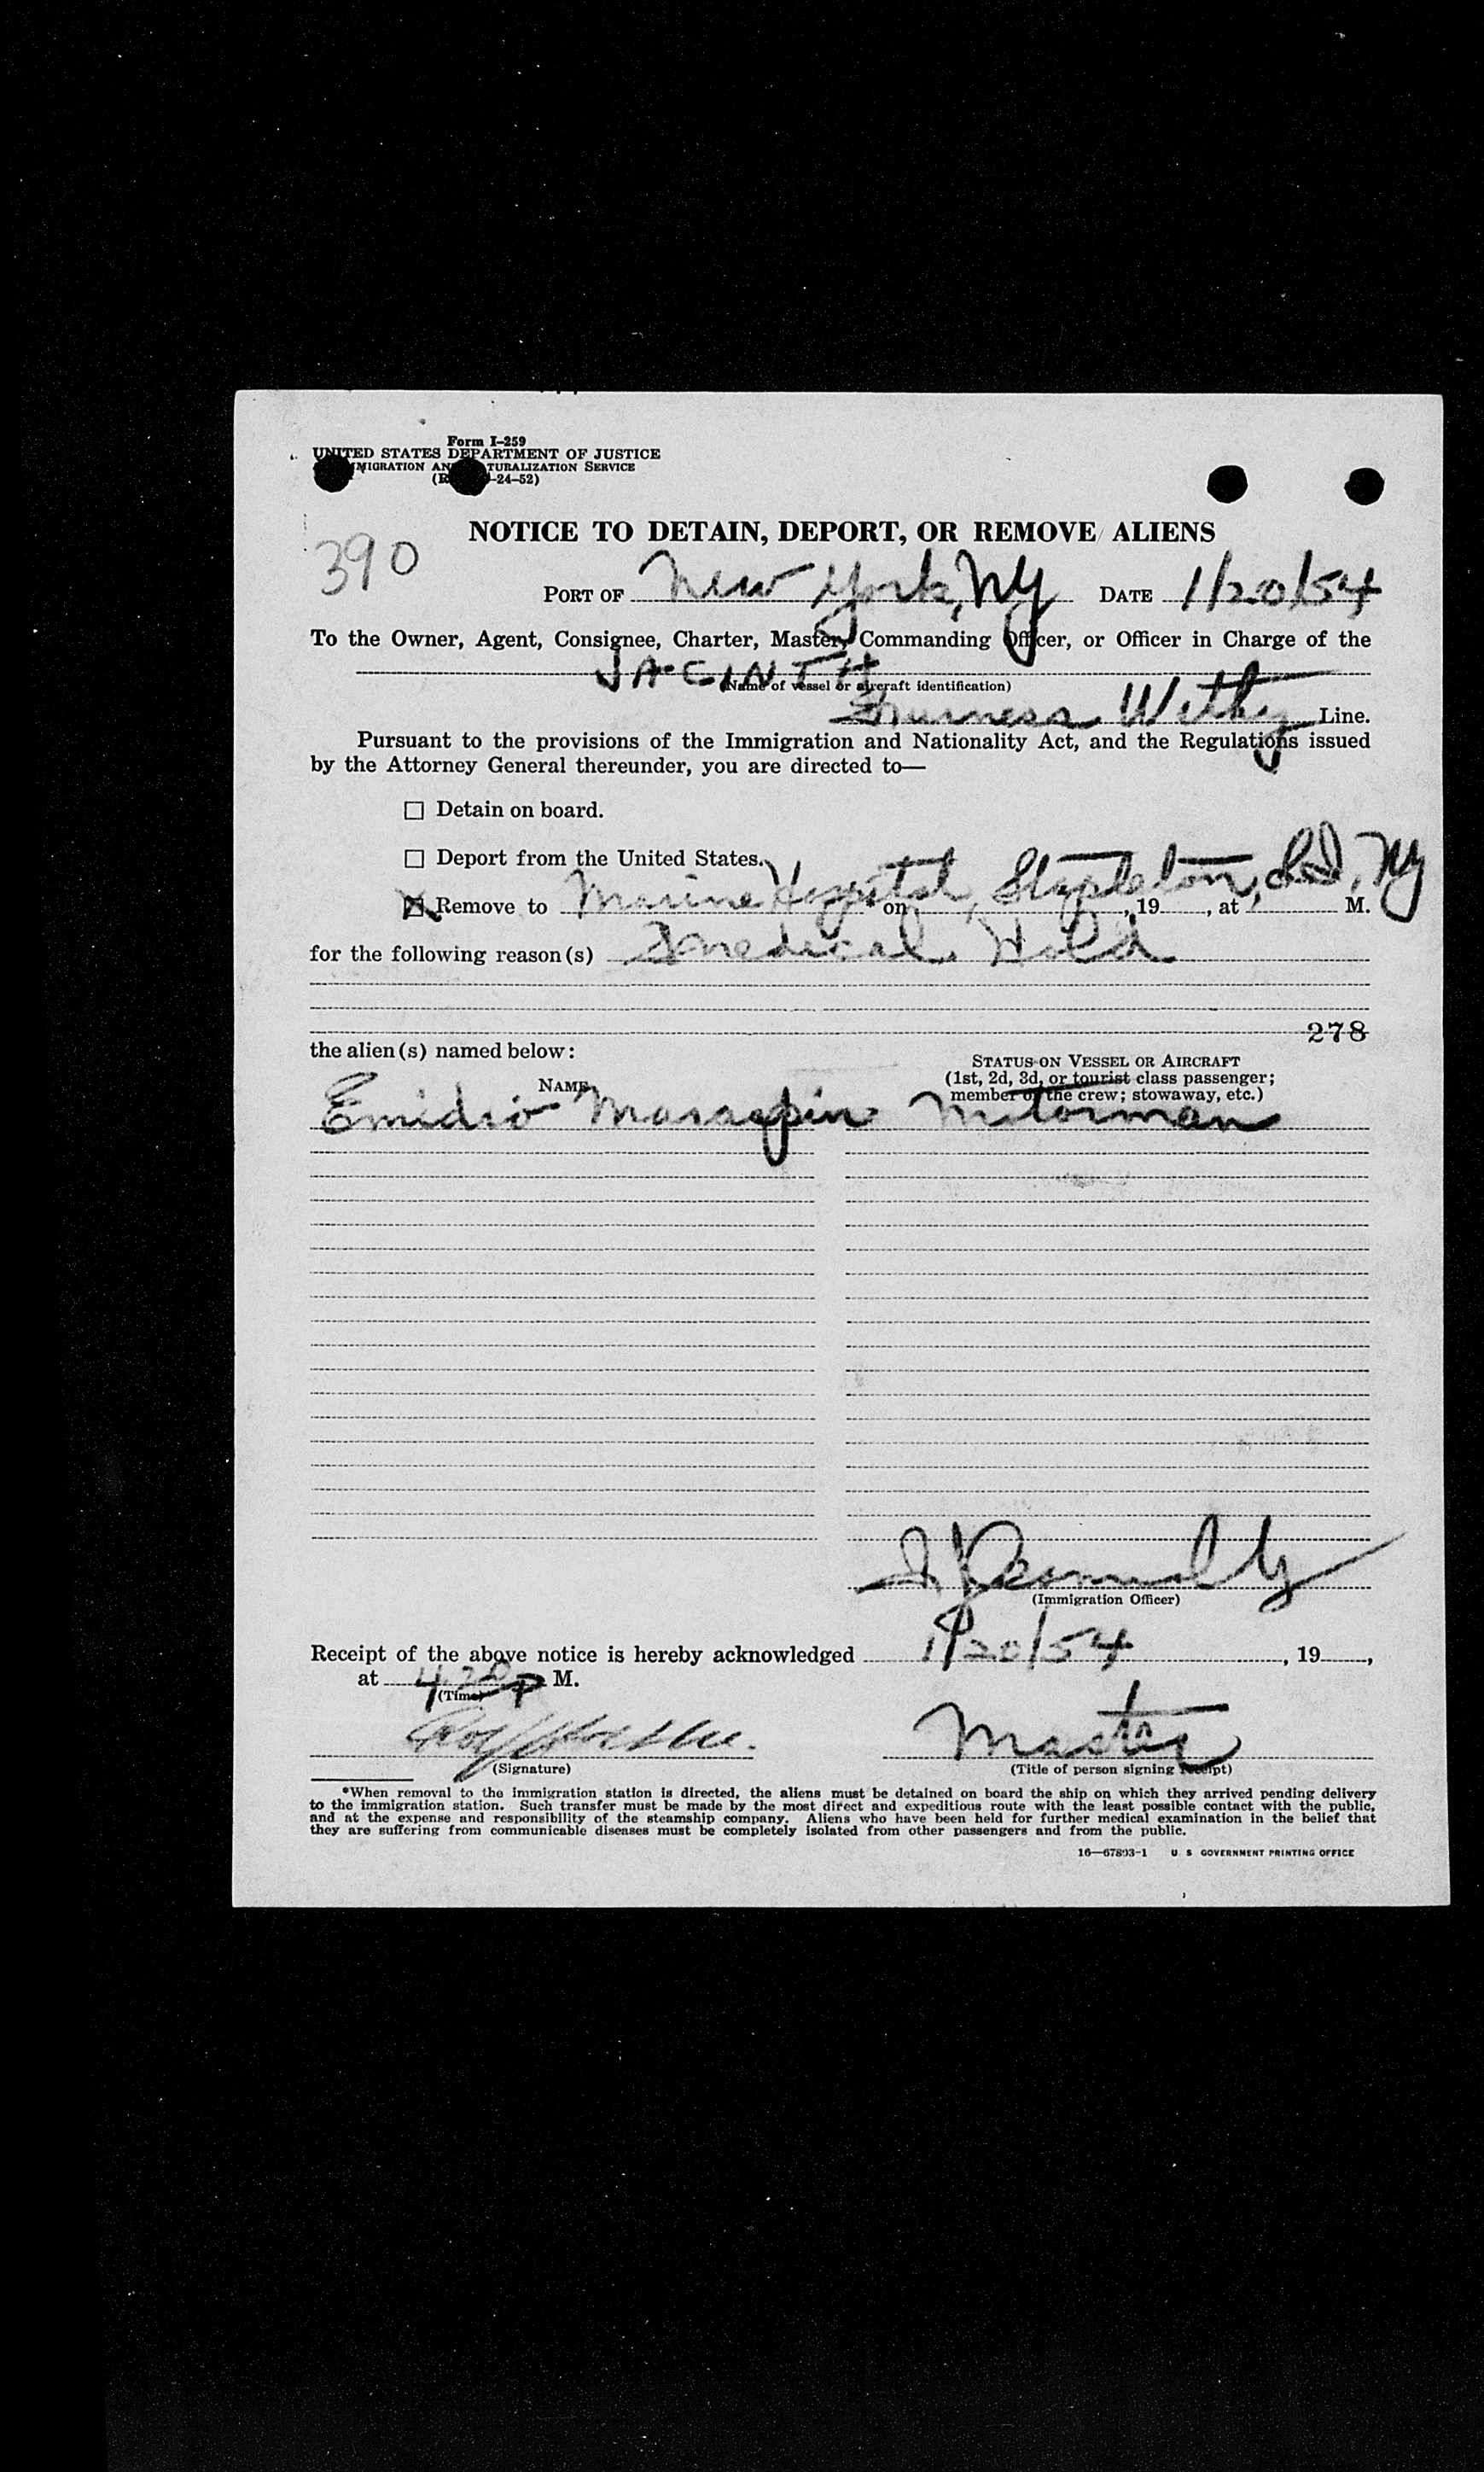 Form I-259
UNITED STATES DEPARTMENT OF JUSTICE
IMMIGRATION AND NATURALIZATION SERVICE
-24-52)
NOTICE TO DETAIN, DEPORT, OR REMOVE ALIENS
390
PORT OF New York, NY DATE 1/20/54
To the Owner, Agent, Consignee, Charter, Master, Commanding Officer, or Officer in Charge of the
JACINTH
(Name of vessel or aircraft identification)
Furness Withy Line.
Pursuant to the provisions of the Immigration and Nationality Act, and the Regulations issued
by the Attorney General thereunder, you are directed to—
☐ Detain on board.
☐ Deport from the United States.
☒ Remove to Marine Hospital, Stapleton, S.I, NY * on , 19 , at M.
for the following reason(s) Medical Hold
278
the alien(s) named below:
NAME
STATUS ON VESSEL OR AIRCRAFT
(1st, 2d, 3d, or tourist class passenger;
member of the crew; stowaway, etc.)
Emidio Motorman
(Immigration Officer)
Receipt of the above notice is hereby acknowledged 1/20/54 , 19 ,
at 4 20 P M.
(Time)
Master
(Signature) (Title of person signing receipt)
*When removal to the immigration station is directed, the aliens must be detained on board the ship on which they arrived pending delivery
to the immigration station. Such transfer must be made by the most direct and expeditious route with the least possible contact with the public,
and at the expense and responsibility of the steamship company. Aliens who have been held for further medical examination in the belief that
they are suffering from communicable diseases must be completely isolated from other passengers and from the public.
16—67893-1 U S GOVERNMENT PRINTING OFFICE